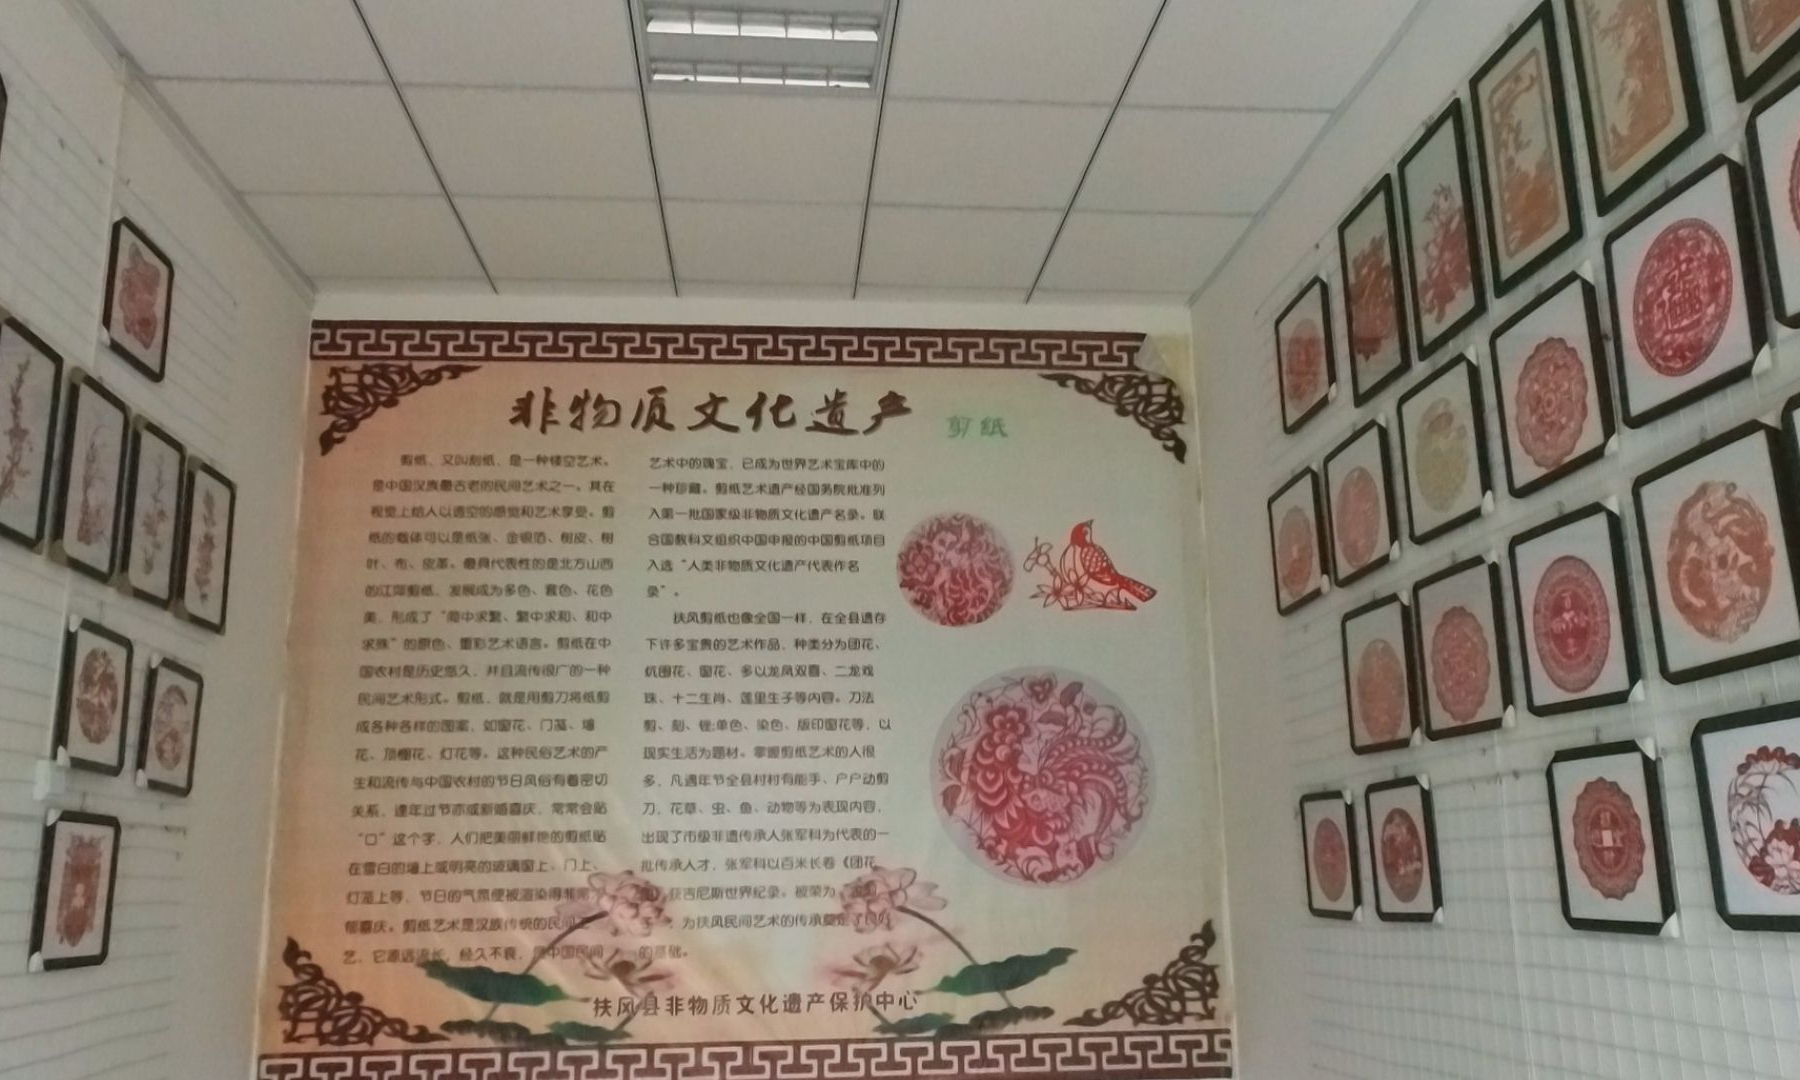 非物质文化遗产 剪纸
剪纸、又叫刻纸，是一种镂空艺术。
是中国汉族最古老的民间艺术之一。其在
视觉上给人以透空的感觉和艺术享受。剪
纸的载体可以是纸张、金银箔、树皮、树
叶、布、皮革。最具代表性的是北方山西
的江河剪纸，发展成为多色、套色、花色
美，形成了“简中求繁、繁中求和、和中
求殊”的原色、重彩艺术语言。剪纸在中
国农村是历史悠久、并且流传很广的一种
民间艺术形式。剪纸，就是用剪刀将纸剪
成各种各样的图案，如窗花、门笺、墙
花、顶棚花、灯花等。这种民俗艺术的产
生和流传与中国农村的节日风俗有着密切
关系，逢年过节亦或新婚喜庆，常常会贴
“口”这个字，人们把美丽鲜艳的剪纸贴
在雪白的墙上或明亮的玻璃窗上、门上、
灯笼上等，节日的气氛便被渲染得非常
郁喜庆。剪纸艺术是汉族传统的民间工
艺，它源远流长，经久不衰，是中国民间
艺术中的瑰宝，已成为世界艺术宝库中的
一种珍藏。剪纸艺术遗产经国务院批准列
入第一批国家级非物质文化遗产名录。联
合国教科文组织中国申报的中国剪纸项目
入选“人类非物质文化遗产代表作名
录”。
扶风剪纸也像全国一样，在全县遗存
下许多宝贵的艺术作品，种类分为团花、
炕围花、窗花、多以龙凤双喜、二龙戏
珠、十二生肖、莲里生子等内容。刀法
剪、刻、锉;单色、染色、版印窗花等，以
现实生活为题材。掌握剪纸艺术的人很
多，凡遇年节全县村村有能手、户户动剪
刀，花草、虫、鱼、动物等为表现内容，
出现了市级非遗传承人张军科为代表的一
批传承人才，张军科以百米长卷《团花
获吉尼斯世界纪录。被荣为
为扶风民间艺术的传承奠定了良好
的基础。
扶风县非物质文化遗产保护中心